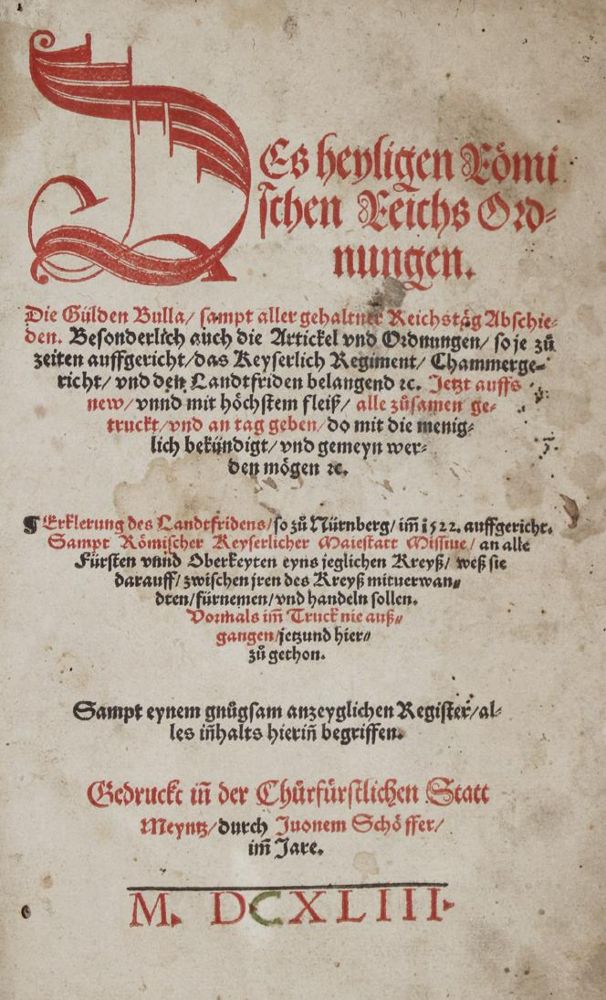 DEs heyligen Römi
schen Reichs Ord-
nungen.
Die Gülden Bulla/ sampt aller gehaltner Reichståg Abschie-
den. Besonderlich auch die Artickel vnd Ordnungen/ so je zů
zeiten auffgericht/ das Keyserlich Regiment/ Chammerge-
richt/ vnd den Landtfriden belangend ꝛc. Jetzt auffs
new/ vnnd mit höchstem fleiß/ alle zůsamen ge-
truckt/ vnd an tag geben/ do mit die menig-
lich bekündigt/ vnd gemeyn wer-
den mögen ꝛc.
¶ Erklerung des Landtfridens/ so zů Nürnberg/ im̃ 1522. auffgericht.
Sampt Römischer Keyserlicher Maiestatt Missiue/ an alle
Fürsten vnnd Oberkeyten eyns jeglichen Kreyß/ weß sie
darauff/ zwischen jren des Kreyß mituerwan-
dten/ fürnemen/ vnd handeln sollen.
Vormals im̃ Truck nie auß-
gangen/ jetzund hier-
zů gethon.
Sampt eynem gnůgsam anzeyglichen Register/ al-
les iñhalts hieriñ begriffen.
Gedruckt iñ der Chürfürstlichen Statt
Meyntz/ durch Juonem Schöffer/
im̃ Jare.
M. DCXLIII.